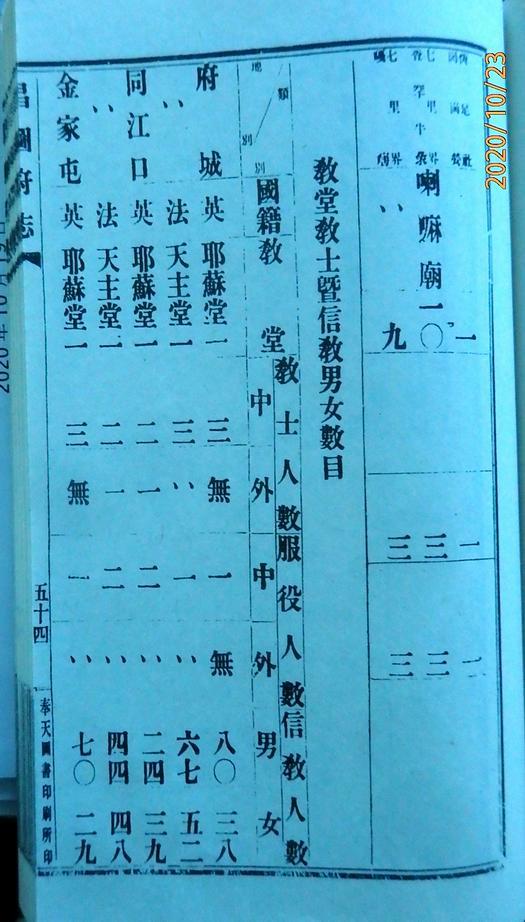 2020/10/23
喇嘛廟一〇
〃
九
一
三
三
一
三
三
敎堂敎士暨信敎男女數目
地
別
類
別
國籍
敎堂
敎士人數
中
外
服役人數
中
外
信敎人數
男
女
府城
英
耶蘇堂一
三
無
一
無
八〇
三八
〃
法
天主堂一
三
〃
一
〃
六七
五二
同江口
英
耶蘇堂一
二
一
二
〃
二四
三九
〃
法
天主堂一
二
一
二
〃
四四
四八
金家屯
英
耶蘇堂一
三
無
一
〃
七〇
二九
昌圖府志
五十四
奉天圖書印刷所印